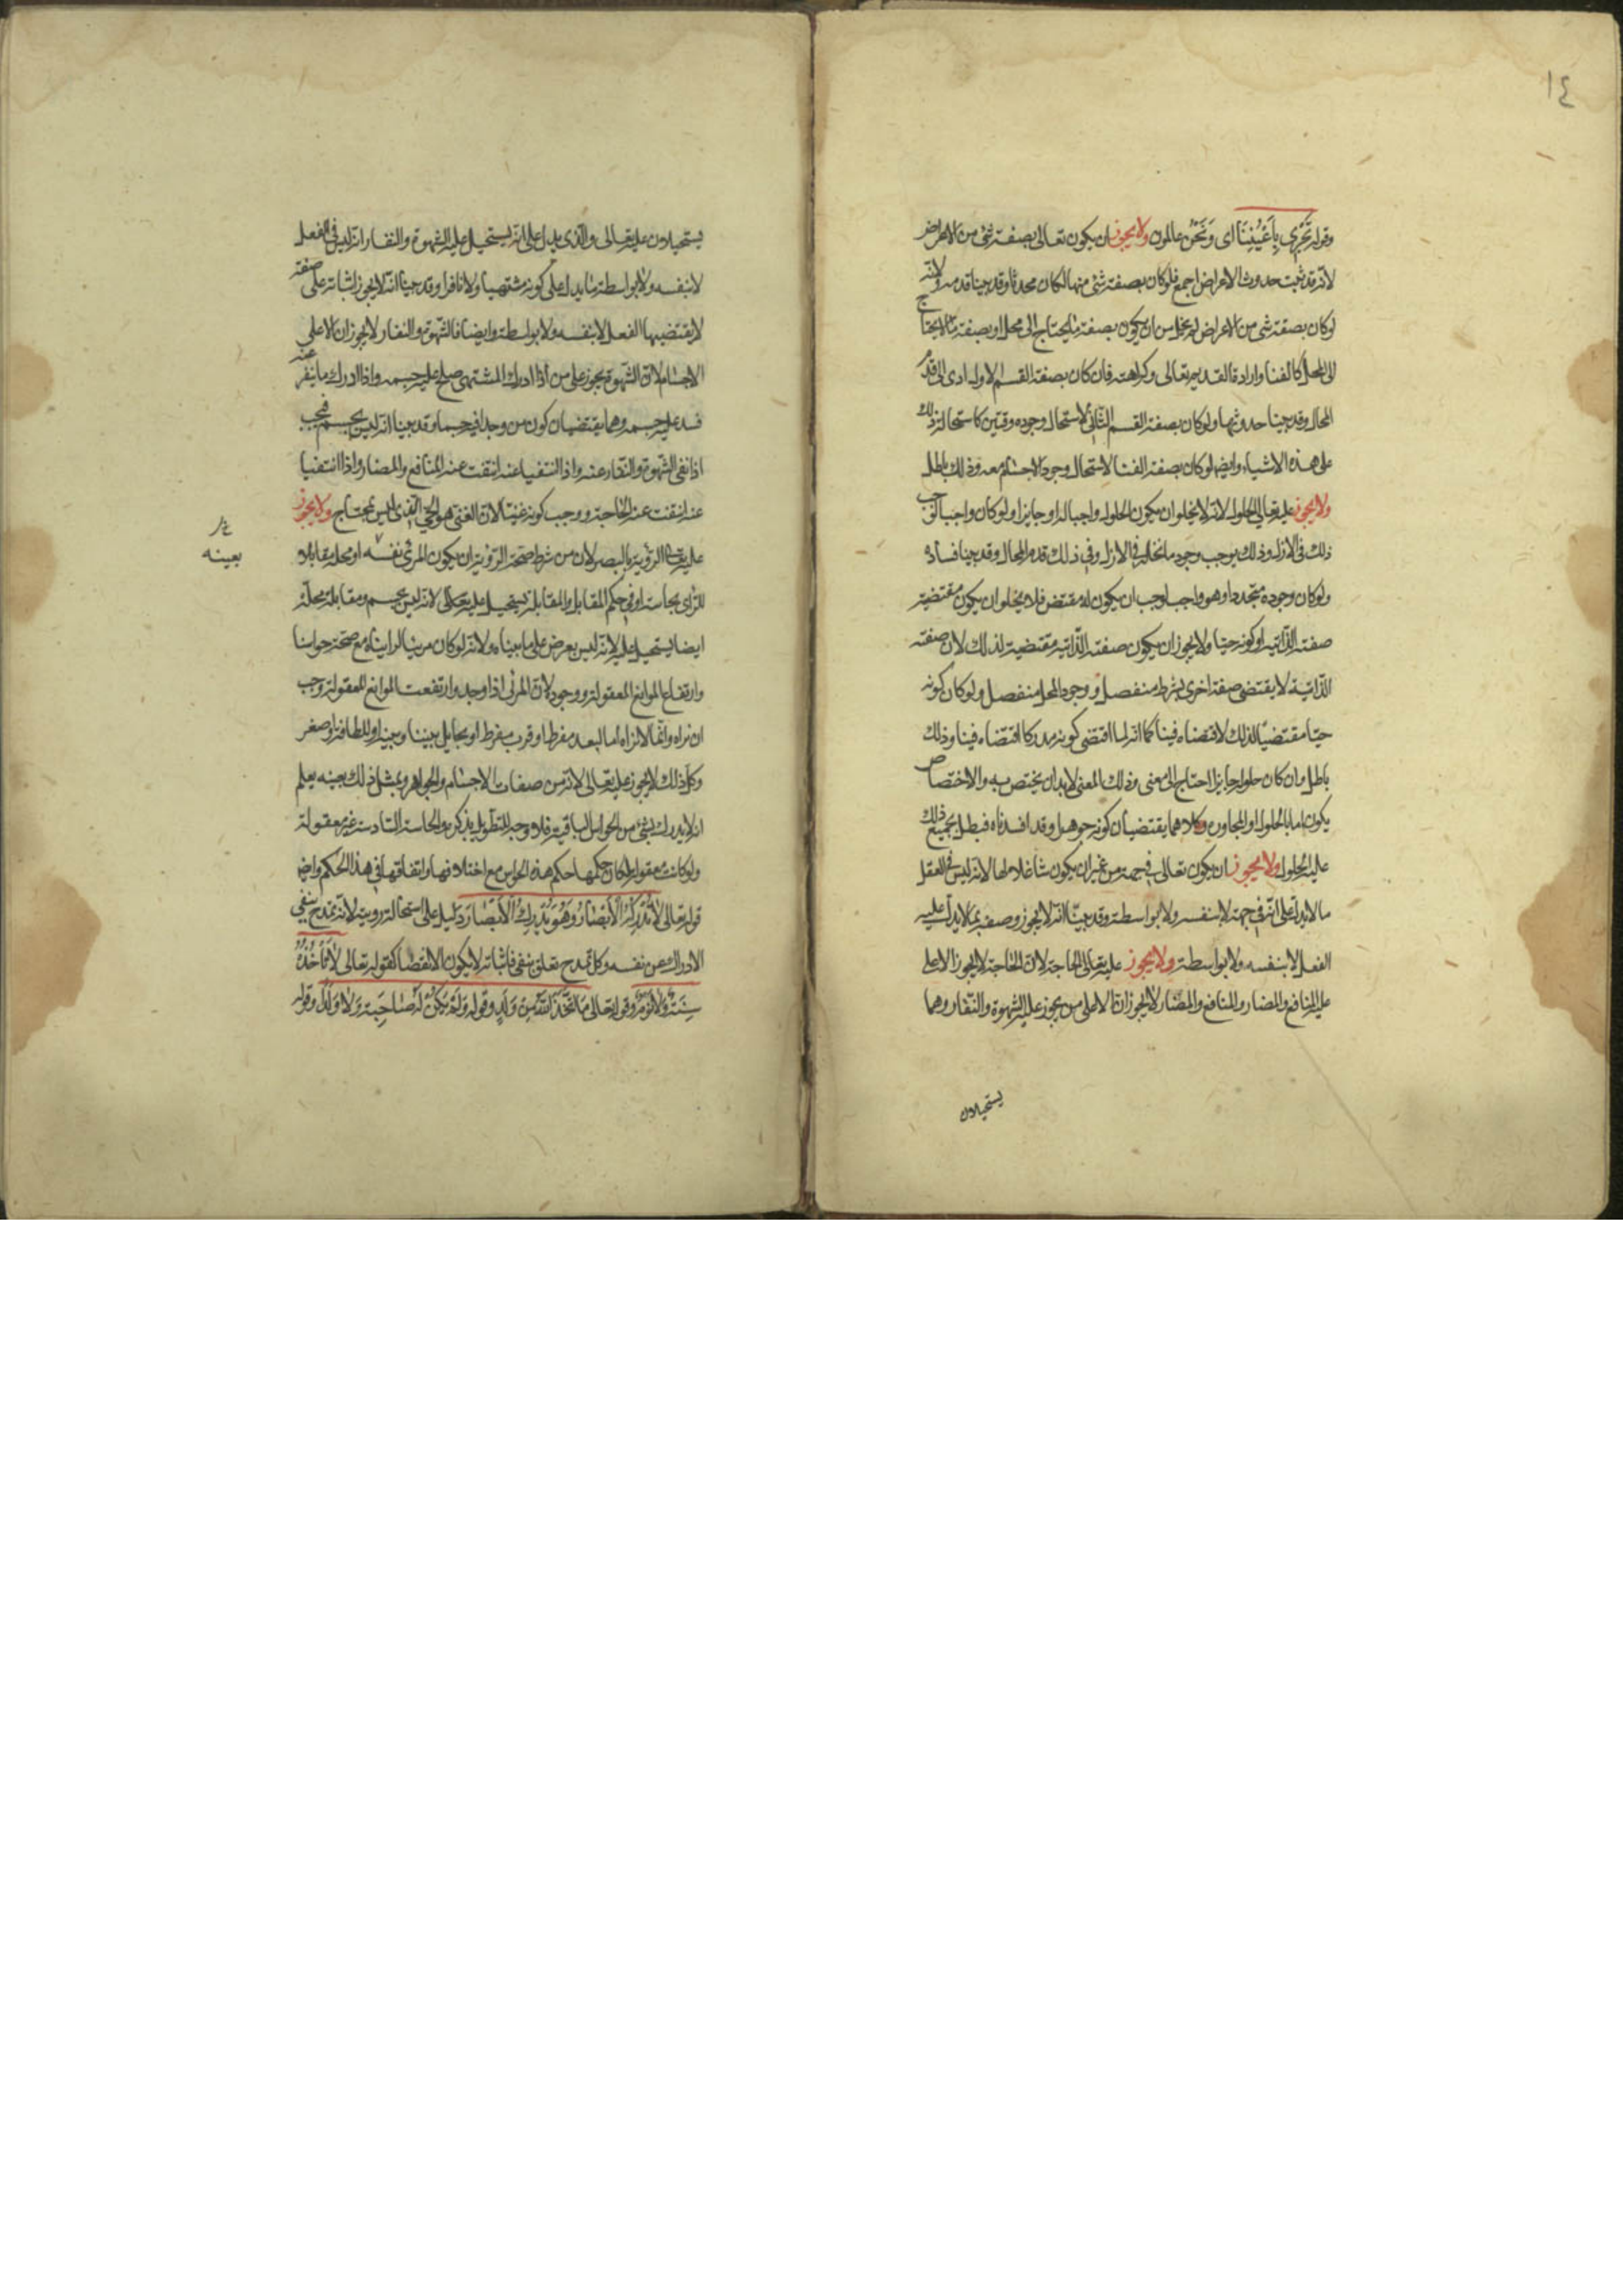 ١٤
وقوله تَجْرِي بِأَعْيُنِنَا اى وَنَحْنُ عالمون ولا يجوز ان يكون تعالى بصفة شئ من الاعراض
لانه قد ثبت حدوث الاعراض اجمع فلو كان بصفة شئ منها لكان محدثا وقد بينا قدمه ولانه
لو كان بصفة شى من الاعراض لم يخل من ان يكون بصفة ما يحتاج الى محل او بصفة ما لا يحتاج
الى المحل كالفنا وارادة القديم تعالى وكراهته فان كان بصفة القسم الاول ادى الى قدم
المحال وقد بينا حدوثها ولو كان بصفة القسم الثانى لاستحال وجوده وقتين كاستحالة ذلك
على هذه الاشياء وايضا لو كان بصفة الفنا لاستحال وجود الاجسام معه وذلك باطل
ولا يجوز عليه تعالى الحلول لانه لا يخلو ان يكون الحلول واجبا له او جايزا ولو كان واجبا لوجب
ذلك فى الازل وذلك يوجب وجود ما يحله فى الازل وفى ذلك قدم المحال وقد بينا فساده
ولو كان وجوده متجددا وهو واجب لوجب ان يكون له مقتض فلا يخلو ان يكون مقتضيه
صفته الذاتيه او كونه حيا ولا يجوز ان يكون صفته الذاتيه مقتضية لذلك لان صفته
الذاتية لا يقتضى صفة اخرى بشرط منفصل ووجود المحل منفصل ولو كان كونه
حيا مقتضيا لذلك لاقتضاه فينا كما انه لما اقتضى كونه مدركا اقتضاه فينا وذلك
باطل وان كان حلوله جايزا احتاج الى معنى وذلك المعنى لا بد ان يختص به والاختصاص
يكون اما بالحلول او المجاورة وكلاهما يقتضيان كونه جوهرا وقد افسدناه فبطل بجميع ذلك
عليه الحلول ولا يجوز ان يكون تعالى فى جهة من غير ان يكون شاغلا لها لانه ليس فى العقل
ما لا يدل على انه فى جهة لا بنفسه ولا بواسطة وقد بينا انه لا يجوز وصفه بما لا يدل عليه
الفعل لا بنفسه ولا بواسطة ولا يجوز عليه تعالى الحاجة لان الحاجة لا يجوز الا على
عليه المنافع والمضار والمنافع والمضار لا يجوزان الا على من يجوز عليه الشهوة والنفار وهما
يستحيلان
يستحيلان عليه تعالى والذى يدل على انه يستحيل عليه الشهوة والنفار انه ليس فى الفعل
لا بنفسه ولا بواسطة ما يدل على كونه مشتهيا ولا نافرا وقد بينا انه لا يجوز اثباته على صفة
لا يقتضيها الفعل لا بنفسه ولا بواسطة وايضا فالشهوة والنفار لا يجوزان الا على
الاجسام لان الشهوة يجوز على من اذا ادرك المشتهى صلح عليه جسمه واذا ادرك ما ينفر عنه
فسد عليه جسمه وهما يقتضيان كون من وجدا فيه جسما وقد بينا انه ليس بجسم فيجب
اذا نفى الشهوة والنفار عنه واذا انتفيا عنه انتفت عنه المنافع والمضار واذا انتفيا
عنه انتفت عنه الحاجة ووجب كونه غنيا لان الغنى هو الحى الذى ليس بمحتاج ولا يجوز
عليه تعالى الرؤية بالبصر لان من شرط صحة الرؤية ان يكون المرئى نفسه او محله مقابلا
للرائى بحاسته او فى حكم المقابل والمقابلة يستحيل عليه تعالى لانه ليس بجسم ومقابلة محله
ايضا يستحيل عليه لانه ليس بعرض على ما بيناه ولانه لو كان مرئيا لرايناه مع صحة حواسنا
وارتفاع الموانع المعقولة ووجوده لان المرئى اذا وجد وارتفعت الموانع المعقولة وجب
ان نراه وانما لا نراه اما لبعد مفرط او قرب مفرط او بحايل بيننا وبينه او للطافة او صغر
وكل ذلك لا يجوز عليه تعالى لانه من صفات الاجسام والجواهر وبمثل ذلك بعينه يعلم
انه لا يدرك بشئ من الحواس الباقية فلا وجه للتطويل بذكره والحاسة السادسة غير معقولة
ولو كانت معقولة لكان حكمها حكم هذه الحواس مع اختلافها واتفاقها فى هذا الحكم وايضا
قوله تعالى لَا تُدْرِكُهُ الْأَبْصَارُ وَهُوَ يُدْرِكُ الْأَبْصَارَ دليل على استحالة رويته لانه تمدح بنفى
الادراك عن نفسه وكل تمدح تعلق بنفى فاثباته لا يكون الا نقصا كقوله تعالى لَا تَأْخُذُهُ
سِنَةٌ وَلَا نَوْمٌ وقوله تعالى مَا اتَّخَذَ اللَّهُ مِنْ وَلَدٍ وقوله وَلَمْ يَكُنْ لَهُ صَاحِبَة وَلَا وَلَدًا وقوله
بعينه